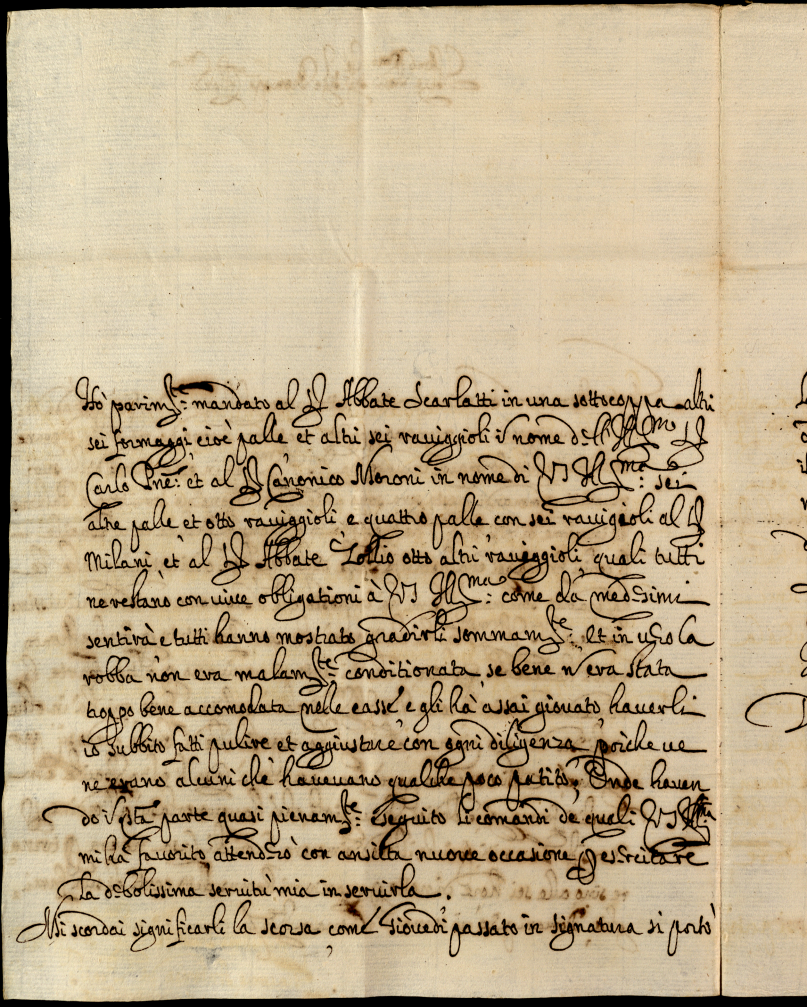 Hò parim.te mandato al S.r Abbate Scarlatti in una sottocoppa altri
sei formaggi cioè palle et altri sei raviggioli i nome dell' Ill.mo S.r
Carlo et al S.r Canonico Moroni in nome di VS Ill.ma: sei
altre palle et otto raviggioli e quattro palle con sei raviggioli al S.r
Milani et al S.r Abbate Lollio otto altri raviggioli quali tutti
ne restano con vive obligationi à VS Ill.ma: come da medesimi
sentirà e tutti hanno mostrato gradirli sommam.te: et in vero la
robba non era malam.te: conditionata se bene n'era stata
troppo bene accomodata nelle casse e gli hà assai giovato haverli
io subbito fatti pulire et aggiustare con ogni diligenza poiche ve
ne erano alcuni che havevano qualche poco patito; Onde haven
do i q.sta parte quasi pienam.te: eseguito li comandi de quali VS Ill.ma
mi hà favorito attenderò con ansietà nuove occasione p esercitare
la debolissima servitù mia in servirla.
Mi scordai significarli la scorsa come Giovedì passato in signatura si portò